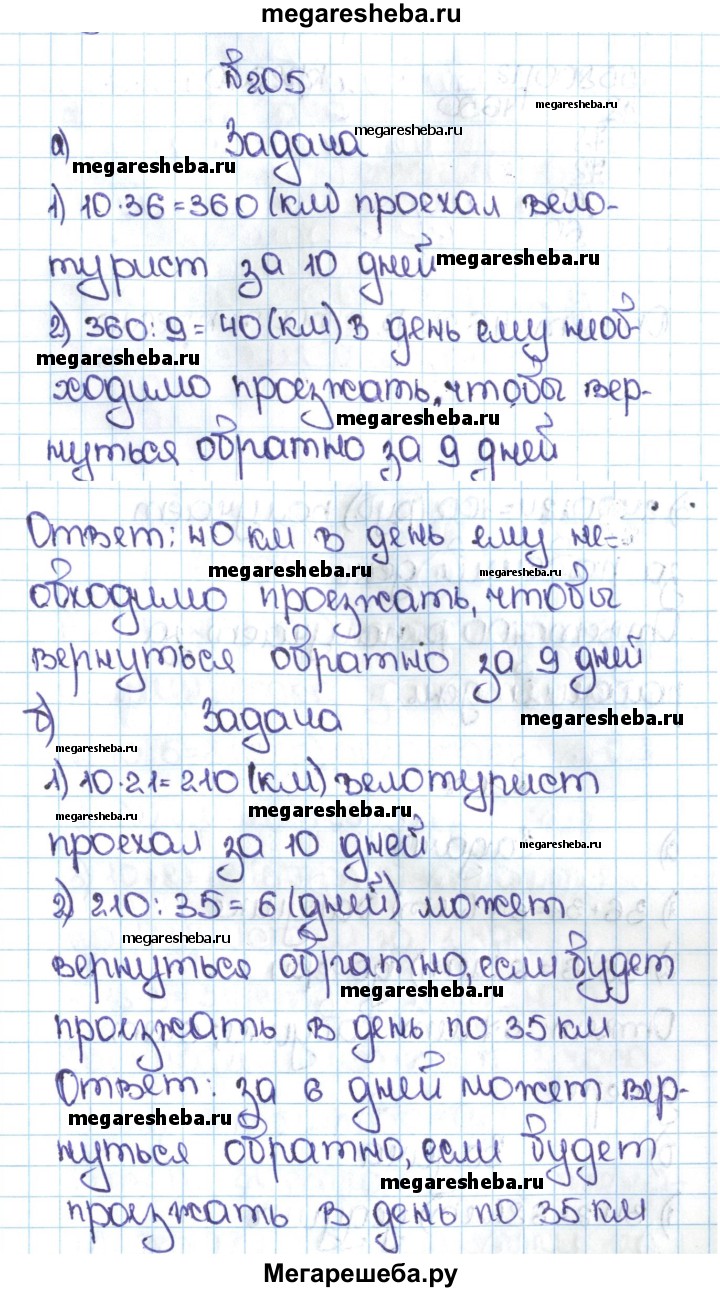 megaresheba.ru
№205
megaresheba.ru
а) Задача megaresheba.ru
megaresheba.ru
1) 10·36=360 (км) проехал вело-
турист за 10 дней megaresheba.ru
2) 360:9=40(км) в день ему необ-
megaresheba.ru
ходимо проезжать, чтобы вер-
megaresheba.ru
нуться обратно за 9 дней
Ответ: 40 км в день ему не-
megaresheba.ru megaresheba.ru
обходимо проезжать, чтобы
вернуться обратно за 9 дней
б) Задача megaresheba.ru
megaresheba.ru
1) 10·21=210 (км) велотурист
megaresheba.ru
megaresheba.ru
проехал за 10 дней megaresheba.ru
2) 210:35=6 (дней) может
megaresheba.ru
вернуться обратно, если будет
megaresheba.ru
проезжать в день по 35 км
Ответ: за 6 дней может вер-
megaresheba.ru
нуться обратно, если будет
megaresheba.ru
проезжать в день по 35 км
Мегарешеба.ру